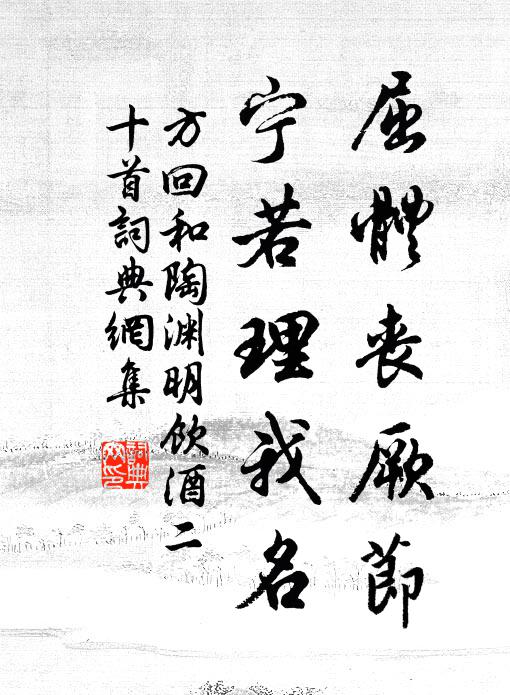 屈體喪厥節
宁若理我名
方回和陶渊明飲酒二
十首詞典網集